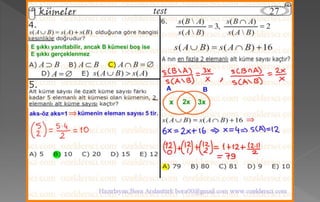 kümeler test 27
4.
s(A∪B) = s(A) + s(B) olduğuna göre hangisi
kesinlikle doğrudur?
E şıkkı yanıltabilir, ancak B kümesi boş ise
E şıkkı gerçeklenmez
A) A⊃B B) A⊂B C) A∩B=∅
D) A=∅ E) s(A∪B) > s(A)
5.
Alt küme sayısı ile özalt küme sayısı farkı
kadar 5 elemanlı alt kümesi olan kümenin, 2
elemanlı alt küme sayısı kaçtır?
aks-öz aks=1 ⇒ kümenin eleman sayısı 5 tir.
(5 2) = 5.4/2 = 10
A) 5 B) 10 C) 20 D) 15 E) 12
6. s(B\A)/s(A\B) = 3, s(B∩A)/s(A\B) = 2
s(A∪B) = s(A∩B) + 16
A nın en fazla 2 elemanlı alt küme sayısı kaçtır?
s(B\A)/s(A\B) = 3x/x, s(B∩A)/s(A\B) = 2x/x
A B
x 2x 3x
s(A∪B) = s(A∩B) + 16 ⇒
6x = 2x + 16 ⇒ x = 4 ⇒ s(A) = 12
(12 0) + (12 1) + (12 2) = 1 + 12 + 12.11/2
= 79
A) 79 B) 80 C) 81 D) 9 E) 10